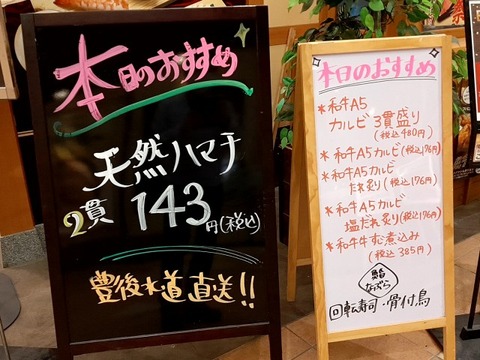 本日のおすすめ
天然ハマチ
2貫 143円(税込)
豊後水道直送!!
本日のおすすめ
*和牛A5
カルビ3貫盛り
(税込480円)
*和牛A5カルビ(税込176円)
*和牛A5カルビ
たれ炙り(税込176円)
*和牛A5カルビ
塩だれ炙り(税込176円)
*和牛牛すじ煮込み
(税込385円)
鮨
回転寿司・骨付鳥